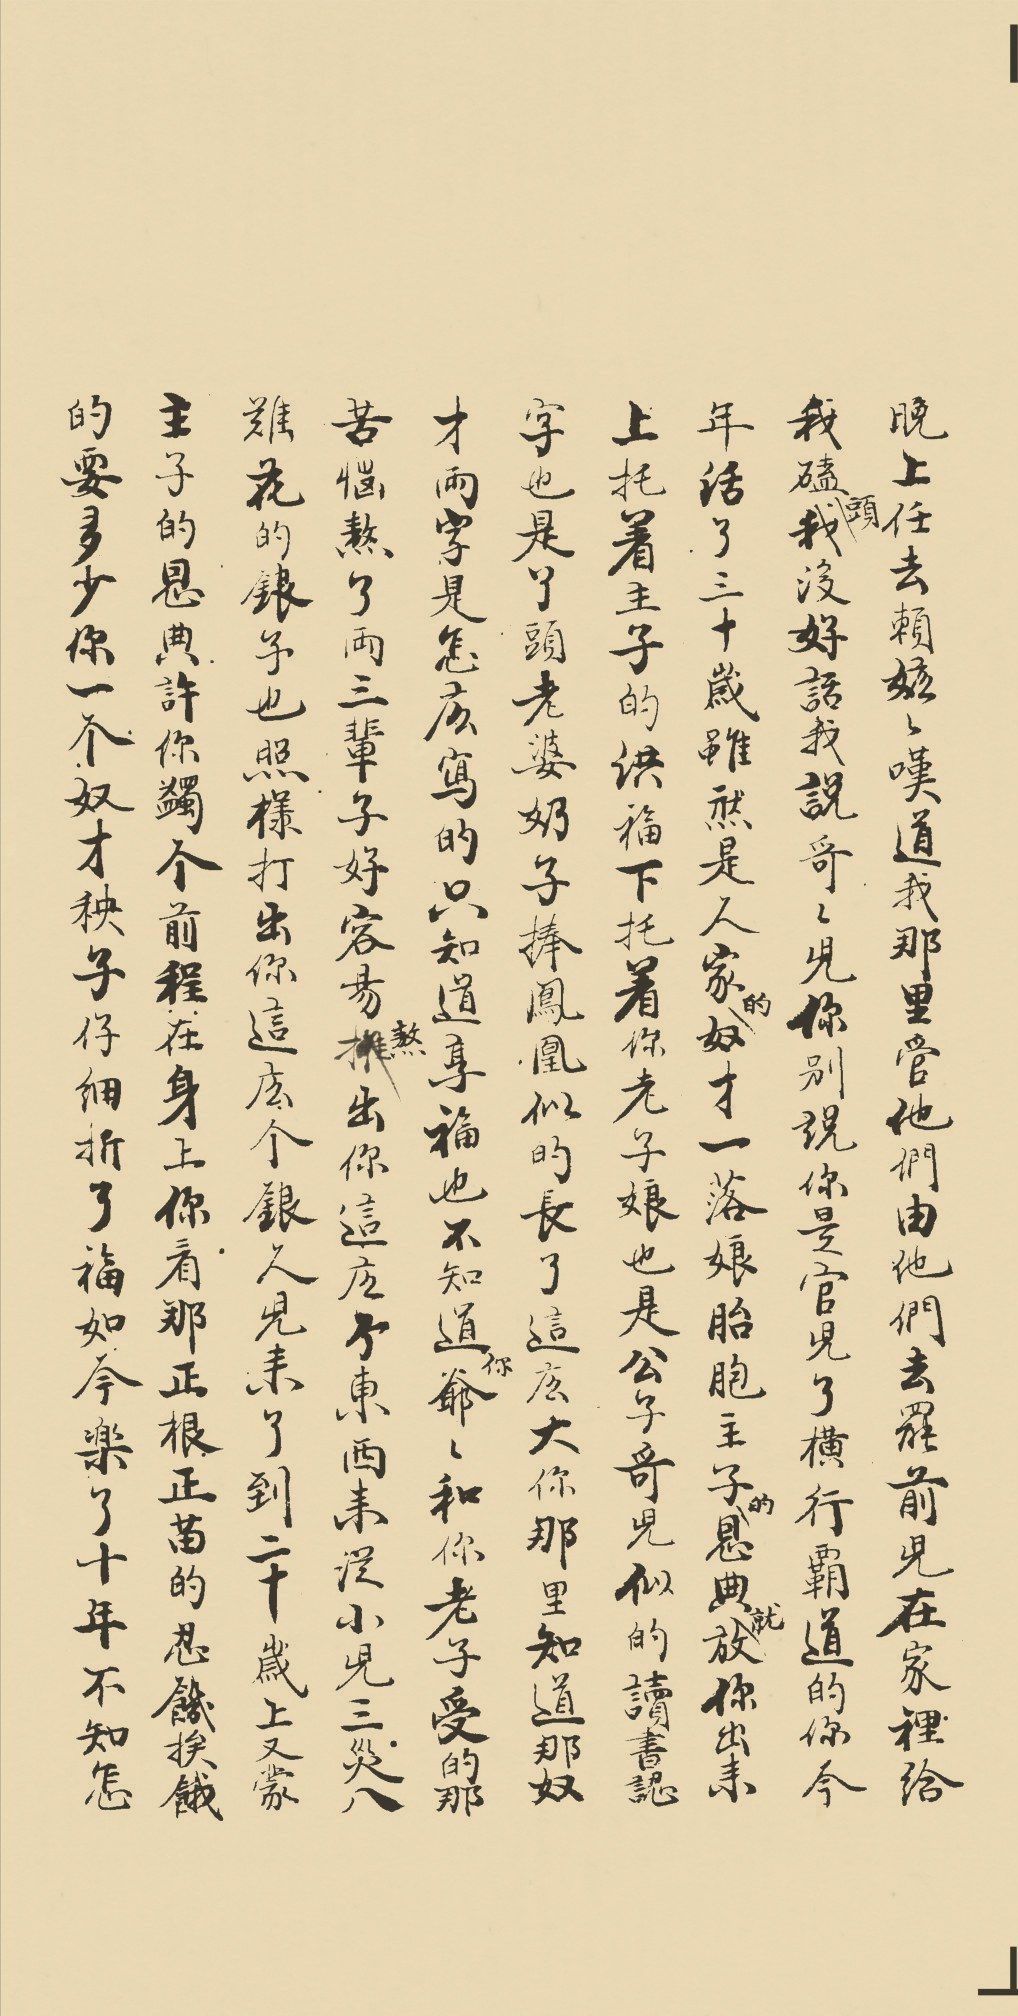 晚上任去賴嬤〻嘆道我那里管他們由他們去罷前兒在家裡給
我磕頭我没好話我說哥〻兒你别說你是官兒了橫行覇道的你今
年活了三十歲雖然是人家的奴才一落娘胎胞主子的恩典就放你出来
上托着主子的洪福下托着你老子娘也是公子哥兒似的讀書認
字也是丫頭老婆奶子捧鳳凰似的長了這庅大你那里知道那奴
才兩字是怎庅寫的只知道享福也不知道你爺〻和你老子受的那
苦惱熬了兩三輩子好容易熬出你這庅个東西来從小兒三災八
難花的銀子也照樣打出你這庅个銀人兒来了到二十歲上又蒙
主子的恩典許你蠲个前程在身上你看那正根正苗的忍饑挨餓
的要多少你一个奴才秧子仔細折了福如今楽了十年不知怎